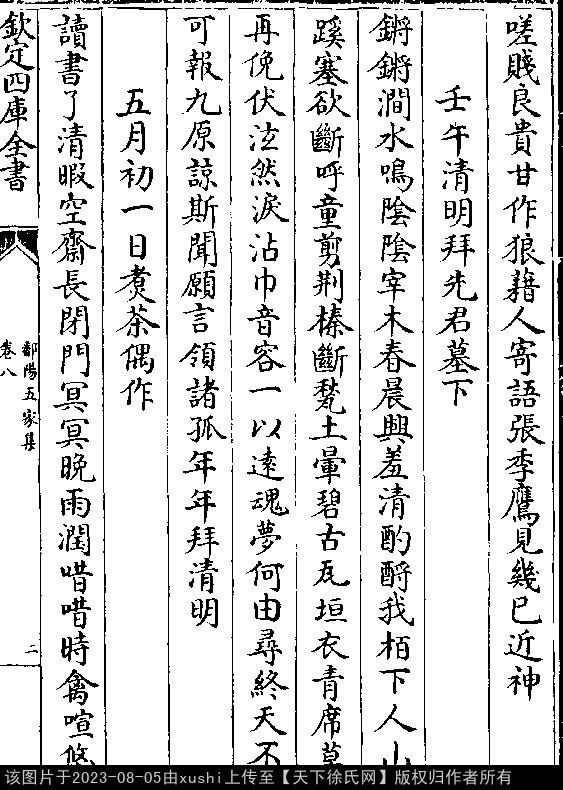 嗟賤良貴甘作狼藉人寄語張季鷹見幾已近神
壬午清明拜先君墓下
鏘鏘澗水鳴陰陰宰木春晨興羞清酌酹我栢下人山
蹊塞欲斷呼童剪荆榛斷甃土暈碧古瓦垣衣青席草
再俛伏泫然淚沾巾音容一以逺魂夢何由尋終天不
可報九原諒斯聞願言領諸孤年年拜清明
五月初一日煑茶偶作
讀書了清暇空齋長閉門冥冥晚雨潤唶唶時禽喧悠
欽定四庫全書
鄱陽五家集
卷八
二
该图片于2023-08-05由xushi上传至【天下徐氏网】版权归作者所有